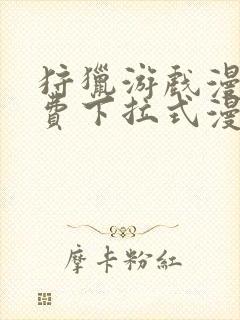 狩獵游戲漫
費下拉式漫
摩卡粉紅